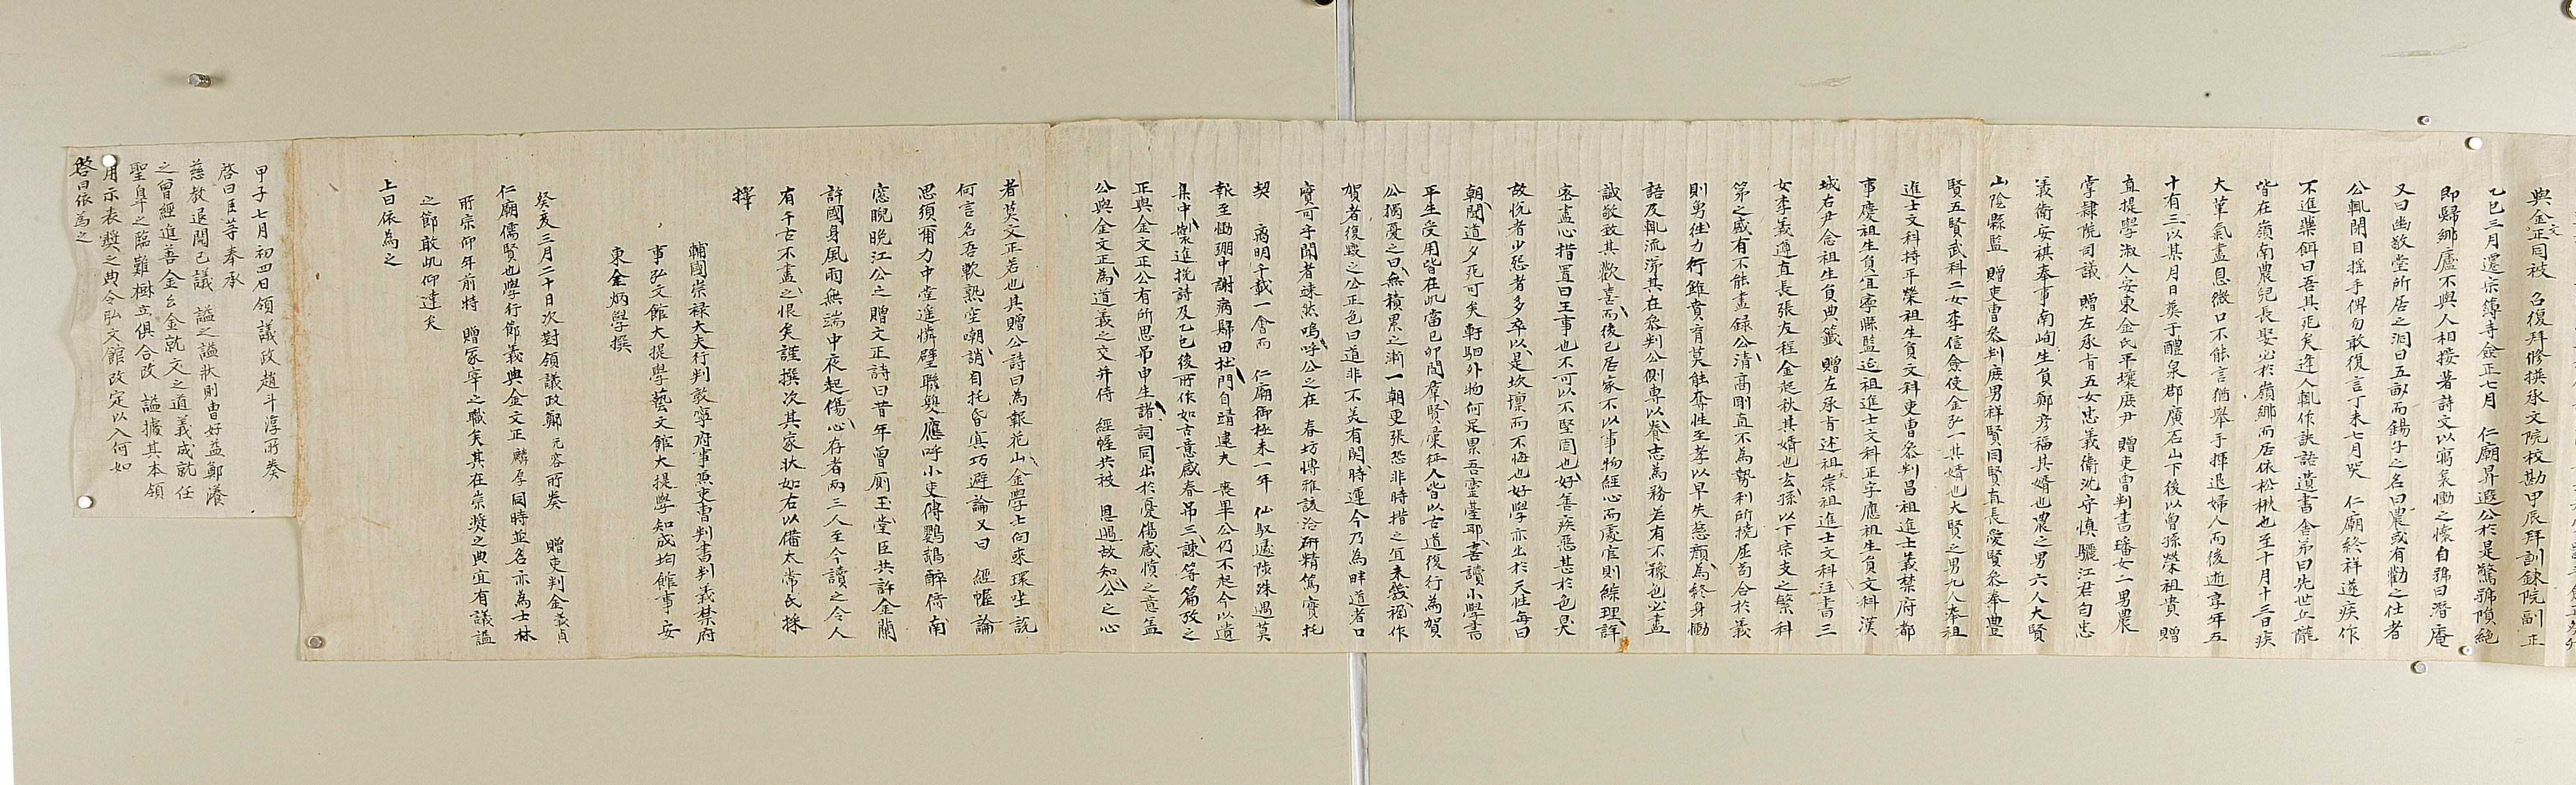 與金文正同被 召復拜修撰承文院校勘甲辰拜訓鍊院副正
乙巳三月還宗簿寺僉正七月 仁廟昇遐公於是驚號隕絶
即歸綁廬不與人相接著詩文以寫哀慟之懷自號曰潛庵
又曰幽敬堂所居之洞曰五畝而錫子之名曰農或有勸之仕者
公輒閉目搖手俾勿敢復言丁未七月哭 仁廟終祥遂疾作
不進藥餌曰吾其死矣逢人輒作訣語遺書舍弟曰先世丘隴
皆在嶺南農兒長娶必於嶺綁而居依松楸也至十月十三日疾
大革氣盡息微口不能言猶舉手揮退婦人而後逝享年五
十有三以某月日葬于醴泉郡廣石山下後以曾孫榮祖貴 贈
直提學淑人安東金氏平壤庶尹 贈吏曹判書璠女二男農
掌隸院司議 贈左承旨五女忠義衛沈守慎驪江君勾忠
義衛安祺奉事南峋生負鄭彦福其婿也農之男六人大賢
山陰縣監 贈吏曹參判庶男祥賢同賢直長愛賢參奉豊
賢五賢武科二女李信僉使金弘一其婿也大賢之男九人奉祖
進士文科持平榮祖生負文科吏曹參判昌祖進士義禁府都
事慶祖生負宜寧縣監延祖進士文科正字應祖生負文科漢
城右尹念祖生負典籤 贈左承旨述祖崇祖進士文科注書三
女李義遵直長張友程金起秋其婿也玄孫以下宗支之繁科
第之盛有不能盡録公清高剛直不為勢利所撓屈苟合於義
則勇往力行雖賁育莫能奪性至孝以早失慈顔為終身慟
語及輒流涕其在參判公側專以養志為務若有不豫也必盡
誠敬致其歡喜而後已居家不以事物經心而處官則綜理詳
密盡心措置曰王事也不可以不堅固也好善疾惡甚於色臭
故悅者少惡者多卒以是坎壈而不悔也好學亦出於天性每曰
朝聞道夕死可矣軒駟外物何足累吾靈臺耶書讀小學書
平生受用皆在此當己卯間羣賢彙征人皆以古道復行為賀
公獨憂之曰無積累之漸一朝更張恐非時措之宜未幾禍作
賀者復毁之公正色曰道非不美有関時運今乃為畔道者口
實可乎聞者竦然嗚呼公之在 春坊博雅該洽研精篤實托
契 离明千載一會而 仁廟御極未一年 仙馭遽陟殊遇莫
報至慟弸中謝病歸田杜門自靖逮夫 喪畢公仍不起今以遺
集中禦進挽詩及乙巳後所作如古意感春吊三諫等篇攷之
正與金文正公有所思吊申生諸詞同出於憂傷感憤之意盖
公與金文正為道義之交并侍 經幄共被 恩遇故知公之心
者莫文正若也其贈公詩曰為報花山金學士向來環坐說
何言名吾軟熟空嘲誚自托昏冥巧避論又曰 經幄論
思須甫力中堂進憐璧聯雙應呼小吏傳鸚鵡醉倚南
窓睨晚江公之贈文正詩曰昔年曾厠玉堂臣共許金蘭
許國身風雨無端中夜起傷心存者兩三人至今讀之令人
有千古不盡之恨矣謹撰次其家狀如右以備太常氏採
擇
輔國崇禄大夫行判敦寧府事兼吏曹判書判義禁府
事弘文館大提學藝文館大提學知成均館事安
東金炳學撰
癸亥三月二十日次對領議政鄭元容所奏 贈吏判金義貞
仁廟儒賢也學行節義與金文正麟厚同時並名亦為士林
所宗仰年前特 贈冢宰之職矣其在崇奬之典宜有議諡
之節敢此仰達矣
上曰依為之
甲子七月初四日領議政趙斗淳所奏
啓曰臣等奉承
慈教退閱已議 諡之諡狀則曺好益鄭瀁
之曾經進善金玄金就文之道義成就任
聖皐之臨難樹立俱合改 諡據其本領
用示表奬之典令弘文館改定以入何如
啓曰依為之